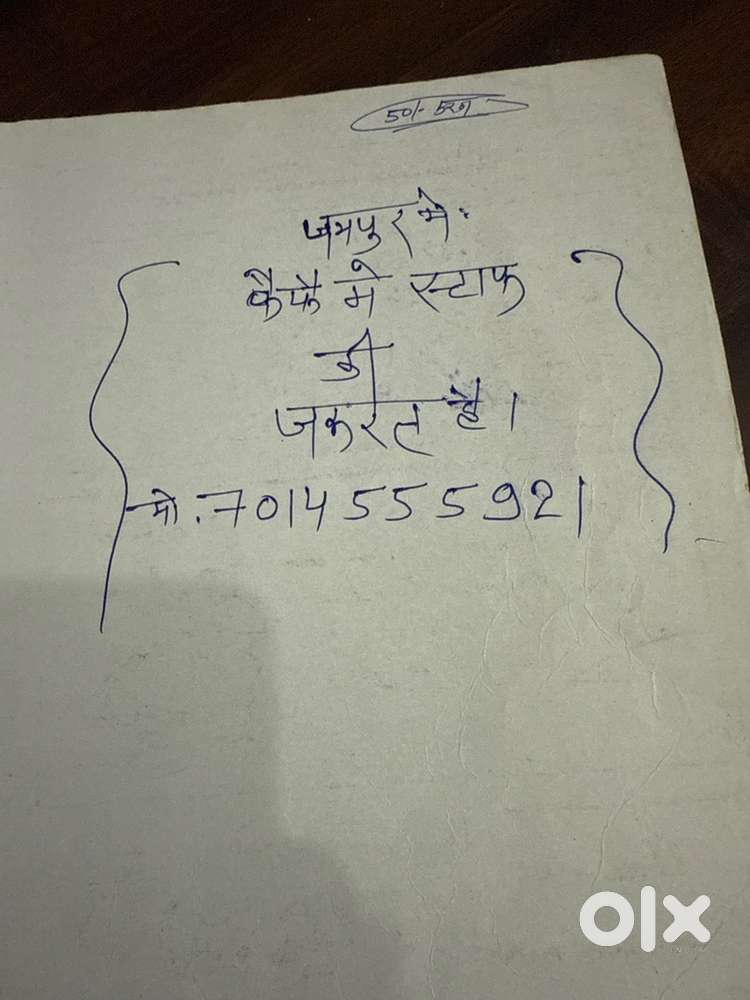 जयपुर मे
कैफै मे स्टाफ
की
जरूरत है।
मो. 7014555921
olx